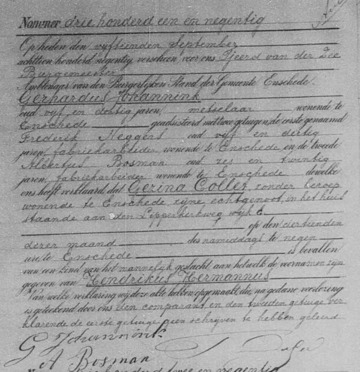 Nummer drie honderd een en negentig
Op heden den vijftienden September
achttien honderd negentig, verscheen voor ons Tjeerd van der Zee
Burgemeester
Ambtenaar van den Burgerlijken Stand der Gemeente Enschede:
Gerhardus Johannink
oud vijf en dertig jaren, metselaar wonende te
Enschede geadsisteerd met twee getuigen, de eerste genaamd
Frederik Meggers oud vijf en dertig
jaren, fabriekarbeider, wonende te Enschede en de tweede
Bosman oud zes en twintig
jaren, fabriekarbeider wonende te Enschede dewelke
ons heeft verklaard, dat Gezina Collet, zonder beroep
wonende te Enschede zijne echtgenoot, in het huis
staande aan den Lipperkerweg wijk C
op den veertienden
dezer maand des namiddags te negen
ure te Enschede is bevallen
van een kind van het mannelijk geslacht aan hetwelk de voornamen zijn
gegeven van Hendrikus Hermannus
Van welke verklaring wij deze akte hebben opgemaakt, die, na gedane voorlezing
is geteekend door ons, den comparant en den tweeden getuige ver-
klarende de eerste getuige geen schrijven te hebben geleerd.
G Johannink
Bosman